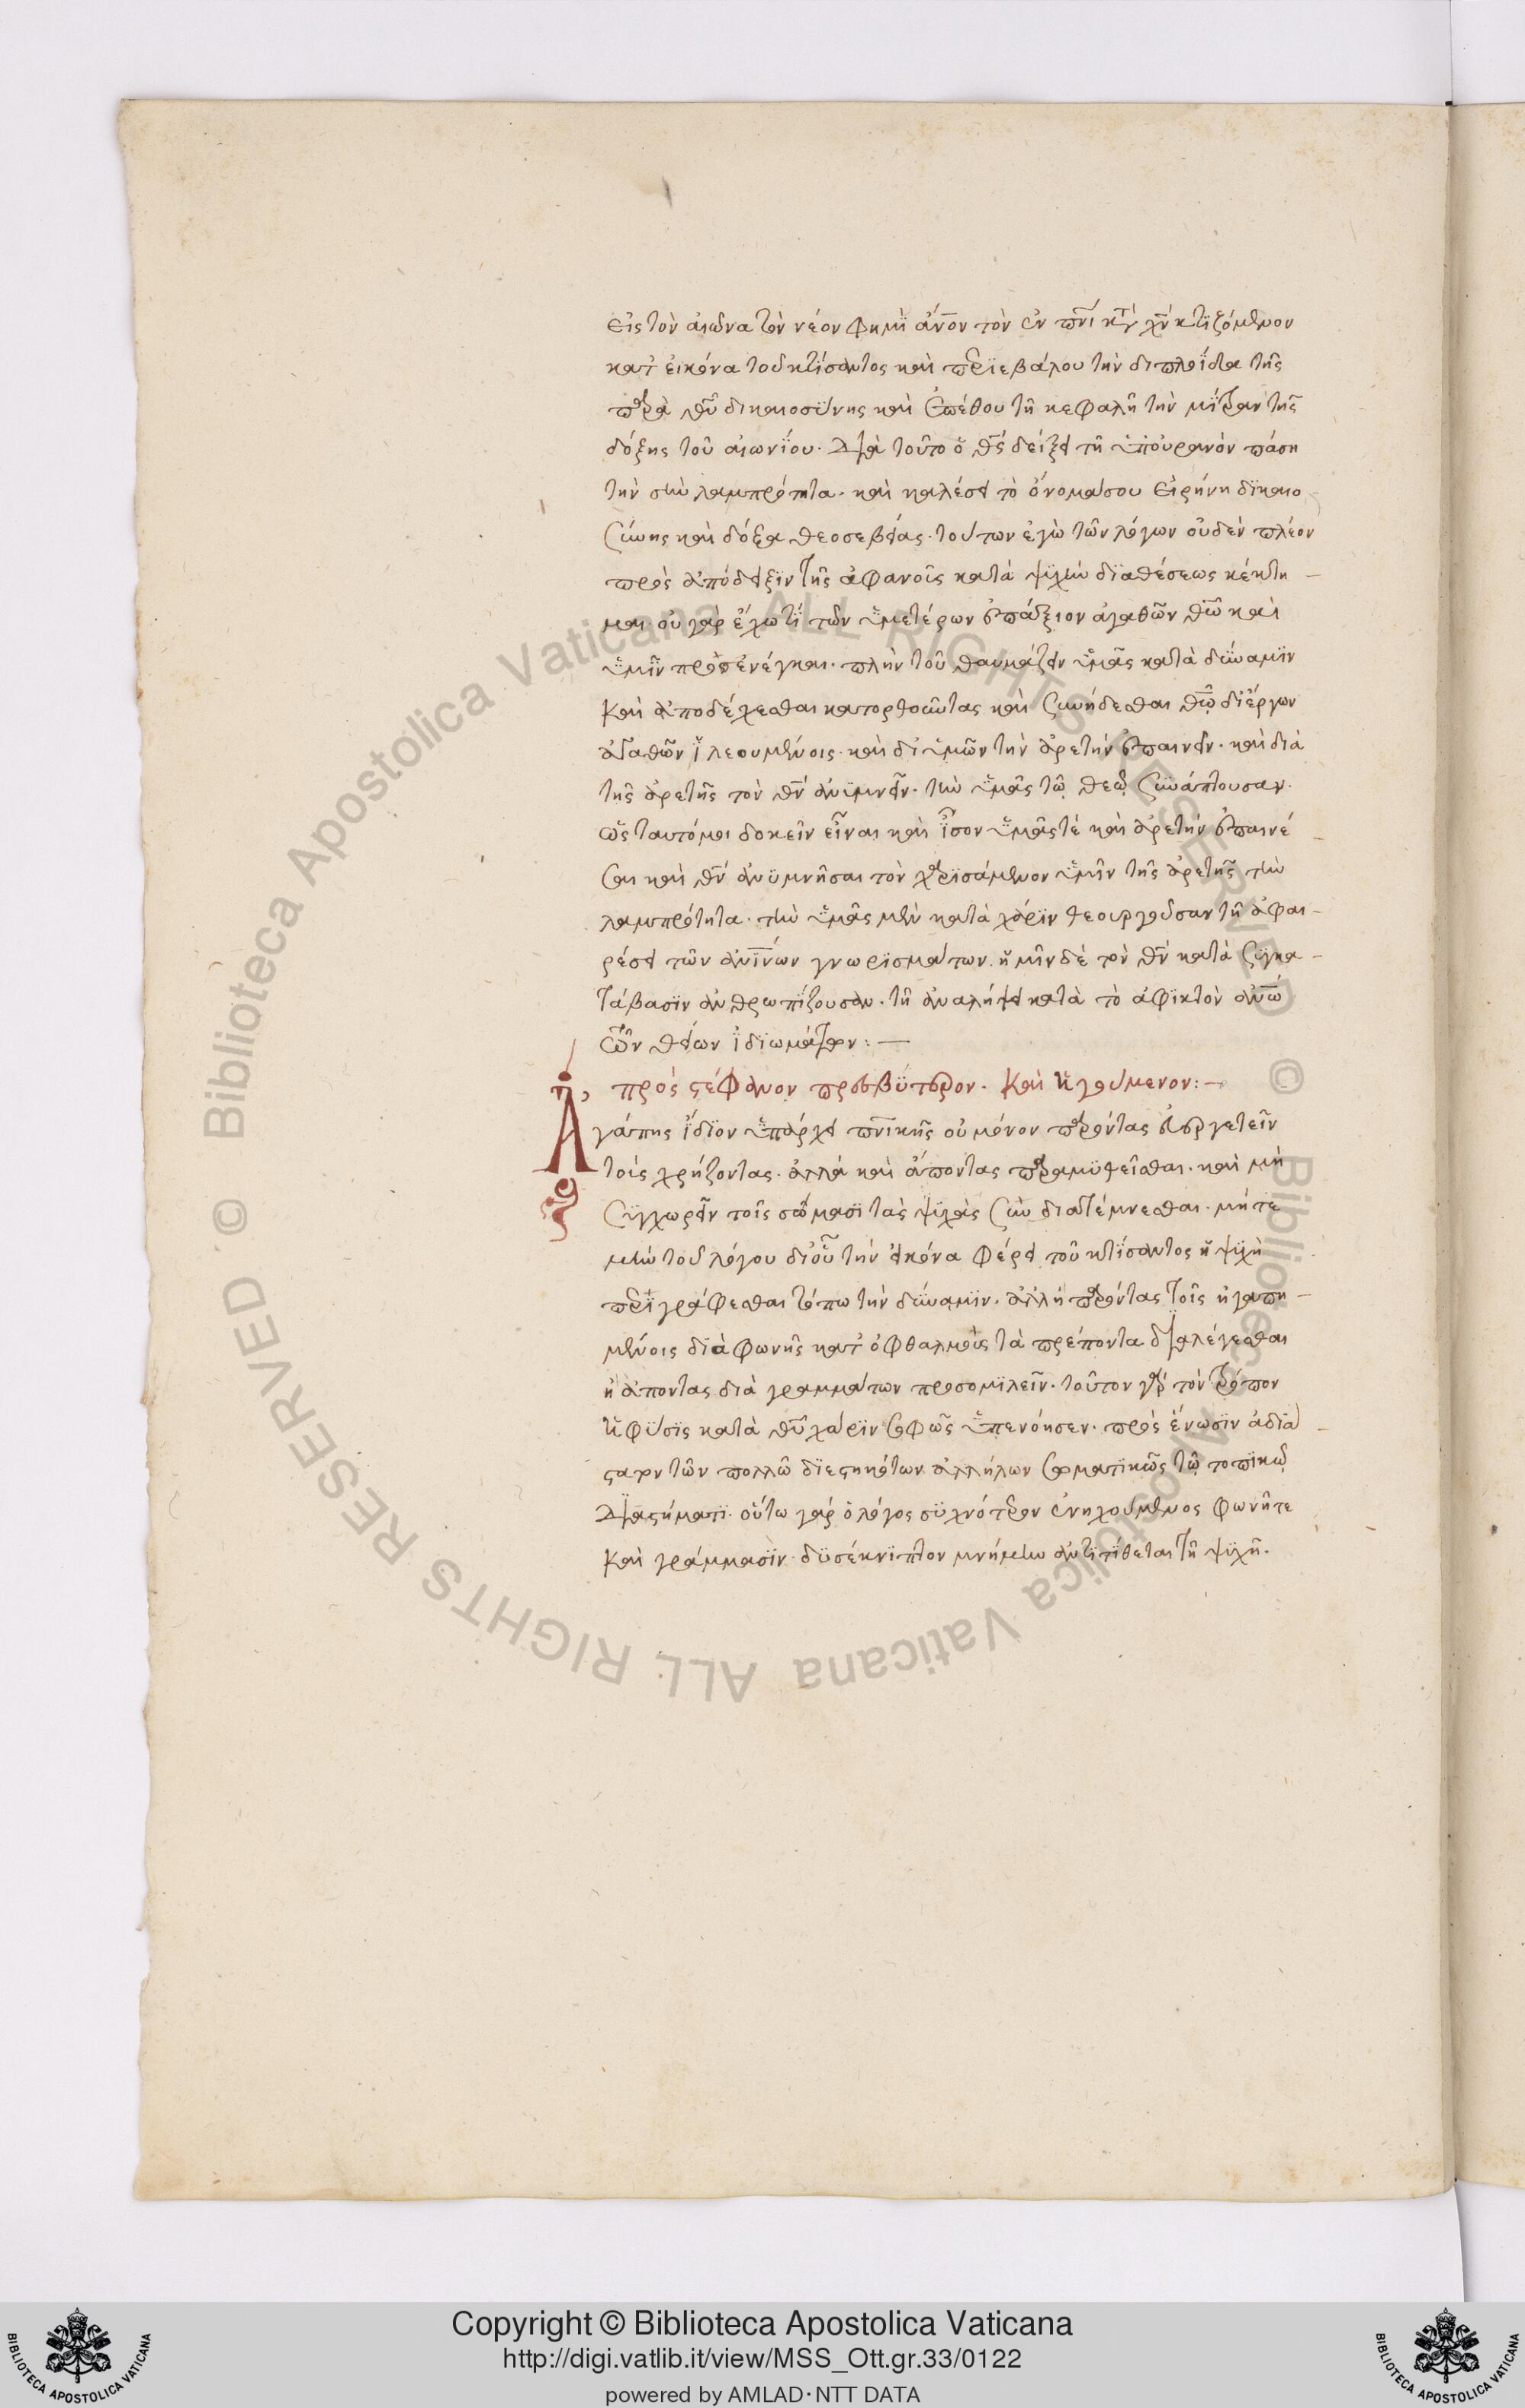 εἰς τὸν αἰῶνα τὸν νέον φημὶ ἄνον τὸν ἐν πνι κτ χν κτιζόμενον
κατ εἰκόνα τοῦ κτίσαντος καὶ περιεβάλου τὴν διπλοΐδα τῆς
παρὰ θῦ δικαιοσύνης καὶ ἐπέθου τῆ κεφαλῆ τὴν μίτραν τῆς
δόξης τοῦ αἰωνίου. διὰ τοῦτο ὁ θς δείξει τῆ ὑπ οὐρανὸν πάση
τὴν σὴν λαμπρότητα. καὶ καλέσει τὸ ὄνομα σου εἰρήνη δικαιο
σύνης καὶ δόξα θεοσεβείας. τούτων ἐγὼ τῶν λόγων οὐδὲν πλέον
πρὸς ἀπόδειξιν τῆς ἀφανοῖς κατὰ ψυχὴν διαθέσεως κέκτη-
μαι. οὐ γὰρ ἔχω τί τῶν ὑμετέρων ἐπάξιον ἀγαθῶν θῶ καὶ
ὑμῖν προσενέγκαι. πλὴν τοῦ θαυμάζειν ὑμᾶς κατὰ δύναμιν
καὶ ἀποδέχεσθαι κατορθοῦντας καὶ συνήδεσθαι θῶ δι έργων
ἀγαθῶν ἱλεουμένοις. καὶ δι ὑμῶν τὴν ἀρετὴν ἐπαινεῖν. καὶ διὰ
τῆς ἀρετῆς τὸν θν ἀνυμνεῖν. τὴν ὑμᾶς τῶ θεῶ συνάπτουσαν.
ὡς ταυτόμοι δοκεῖν εἶναι καὶ ἶσον ὑμᾶς τέ καὶ ἀρετὴν ἐπαινέ-
σαι καὶ θν ἀνυμνῆσαι τὸν χαρισάμενον ὑμῖν τῆς ἀρετῆς τὴν
λαμπρότητα. τὴν ὑμᾶς μὲν κατὰ χάριν θεουργοῦσαν τῆ ἀφαι-
ρέσει τῶν ἀνίνων γνωρισμάτων. ἡμῖν δὲ τὸν θν κατὰ συγκα-
τάβασιν ἀνθρωπίζουσαν. τῆ ἀναλήψει κατὰ τὸ ἀφικτὸν ἀνω
τῶν θείων ἰδιωμάτων:—
πρὸς στέφανον πρεσβύτερον. καὶ ἡγούμενον:—
Ἀγάπης ἴδιον ὑπάρχει πνικῆς οὐ μόνον παρόντας εὐεργετεῖν
τοὶς χρήζοντας. ἀλλὰ καὶ ἄποντας παραμυθεῖσθαι. καὶ μὴ
συγχωρεῖν τοῖς σώμασι τὰς ψυχὰς συν διατέμνεσθαι. μήτε
μὴν τοῦ λόγου δι οὗ τὴν εἰκόνα φέρει τοῦ κτίσαντος ἡ ψυχὴ
περιγράφεσθαι τόπω τὴν δύναμιν. ἀλλ ἡ παρόντας τοῖς ἠγαπη-
μένοις διὰ φωνῆς κατ ὀφθαλμοὺς τὰ πρέποντα διαλέγεσθαι
ἢ ἄποντας διὰ γραμμάτων προσομιλεῖν. τοῦτον γὰρ τὸν τρόπον
ἡ φύσις κατὰ θῦ χάριν σοφῶς ὑπενόησεν. πρὸς ἕνωσιν ἀδια-
στατον τῶν πολλῶ διεστηκότων ἀλλήλων σωματικῶς τῶ τοπικῶ
διαστήματι. οὕτω γάρ ὁ λόγος συχνότερον ἐνηχούμενος φωνῆ τε
καὶ γράμμασιν. δυσέκνιπτον μνήμην ἀντιτίθεται τῆ ψυχῆ.
Copyright © Biblioteca Apostolica Vaticana
http://digi.vatlib.it/view/MSS_Ott.gr.33/0122
powered by AMLAD·NTT DATA